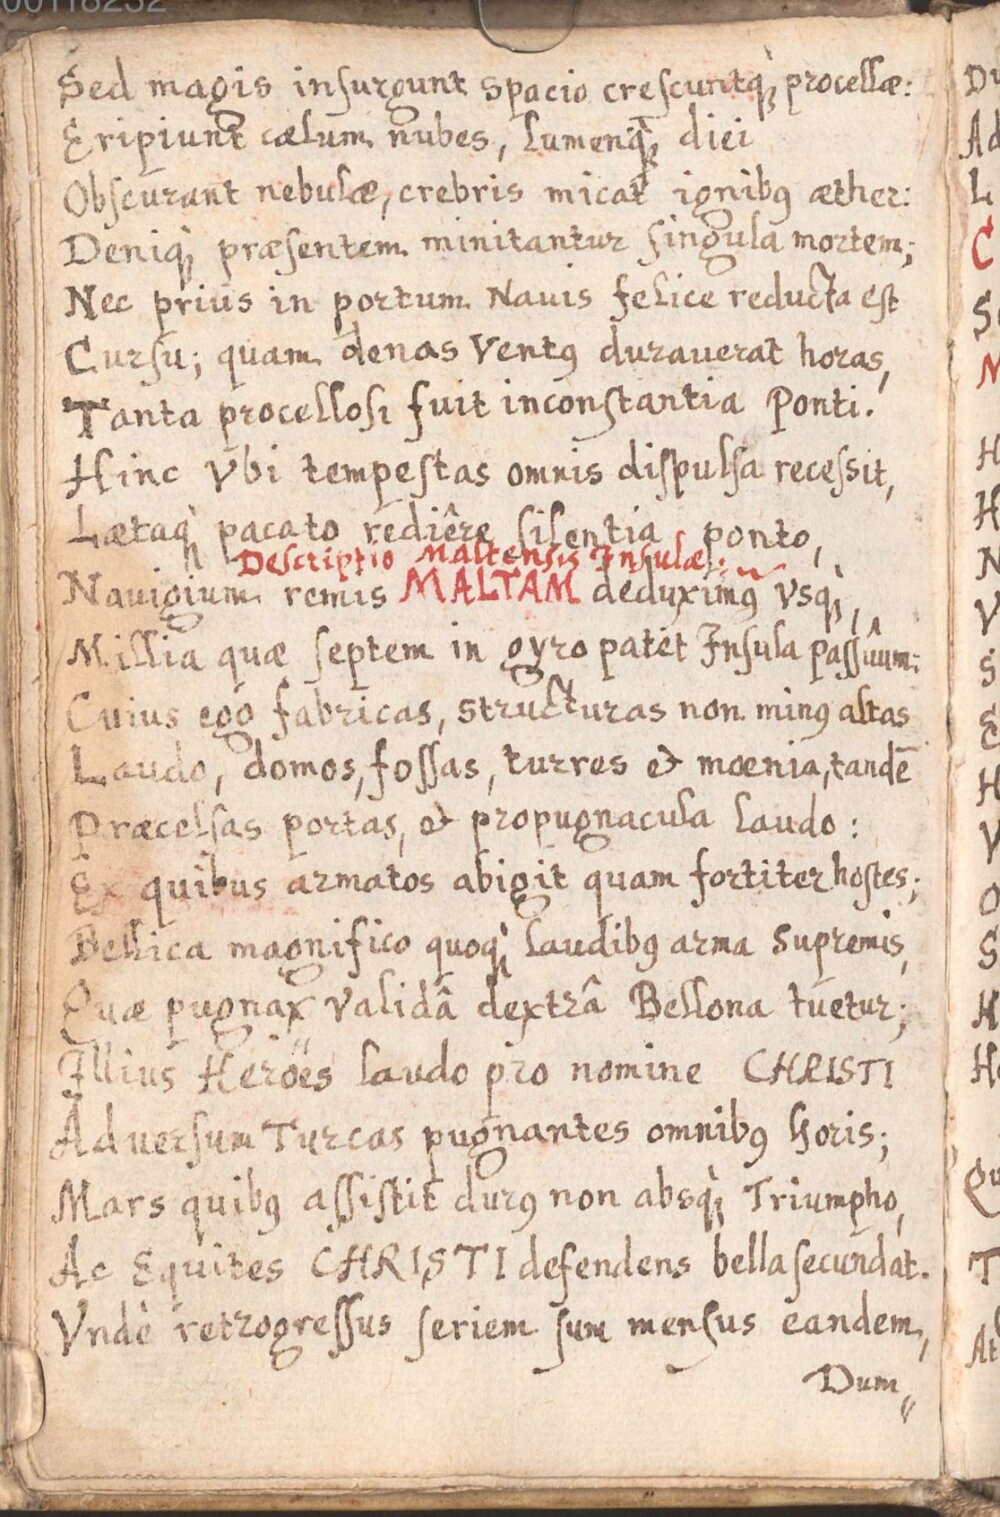 00118232
Sed magis inſurgunt spacio creſcuntq̀₃ procellæ:
Eripiunt cælum nubes, lumenq̀₃ diei
Obſcurant nebulæ, crebris micat ignibꝰ æther:
Deniq̀₃ præſentem minitantur ſingula mortem;
Nec priùs in portum Nauis felice reducta eſt
Curſu; quam denas Ventꝰ durauerat horas,
Tanta procelloſi fuit inconſtantia Ponti.
Hinc Vbi tempeſtas omnis diſpulſa receſsit,
Lætaq̀₃ pacato rediêre ſilentia ponto,
Deſcriptio Maltensis Inſulæ:
Nauigium remis MALTAM deduximꝰ Vsq̀₃,
Millia quæ ſeptem in gyro patet Inſula paſſûum:
Cuius ego fabricas, structuras non minꝰ altas
Laudo, domos, foſſas, turres & mœnia, tandē
Præcelſas portas, & propugnacula laudo:
Ex quibus armatos abigit quam fortiter hoſtes;
Bellica magnifico quoq̀₃ laudibꝰ arma Supremis,
Quæ pugnax Validâ dextrâ Bellona tuetur;
Illius Heröes laudo pro nomine CHRISTI
Aduerſum Turcas pugnantes omnibꝰ horis;
Mars quibꝰ aſſiſtit durꝰ non absq̀₃ Triumpho,
Ac Equites CHRISTI defendens bella ſecundat.
Vndè retrogreſſus ſeriem ſum menſus eandem,
Dum